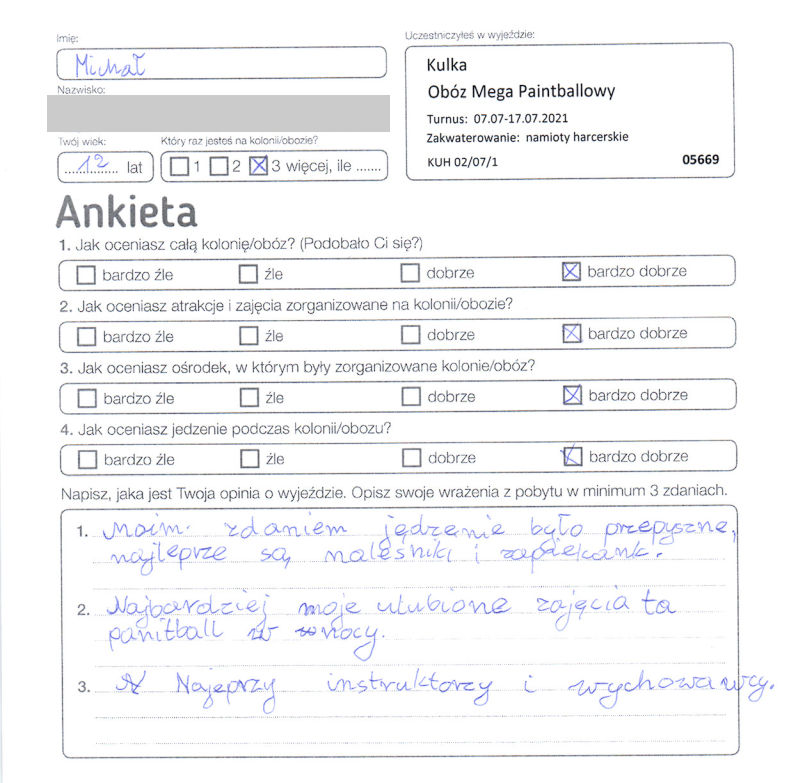 Imię:
Michał
Nazwisko:
Twój wiek:
12 lat
Który raz jesteś na kolonii/obozie?
1 2 3 więcej, ile .......
Uczestniczyłeś w wyjeździe:
Kulka
Obóz Mega Paintballowy
Turnus: 07.07-17.07.2021
Zakwaterowanie: namioty harcerskie
KUH 02/07/1 05669
Ankieta
1. Jak oceniasz całą kolonię/obóz? (Podobało Ci się?)
bardzo źle źle dobrze bardzo dobrze
2. Jak oceniasz atrakcje i zajęcia zorganizowane na kolonii/obozie?
bardzo źle źle dobrze bardzo dobrze
3. Jak oceniasz ośrodek, w którym były zorganizowane kolonie/obóz?
bardzo źle źle dobrze bardzo dobrze
4. Jak oceniasz jedzenie podczas kolonii/obozu?
bardzo źle źle dobrze bardzo dobrze
Napisz, jaka jest Twoja opinia o wyjeździe. Opisz swoje wrażenia z pobytu w minimum 3 zdaniach.
1. Moim zdaniem jędzenie było przepyszne,
najleprze są naleśniki i zapiekank.
2. Najbardziej moje ulubione zajęcia ta
panitball w nocy.
3. Najeprzy instruktorzy i wychowawcy.